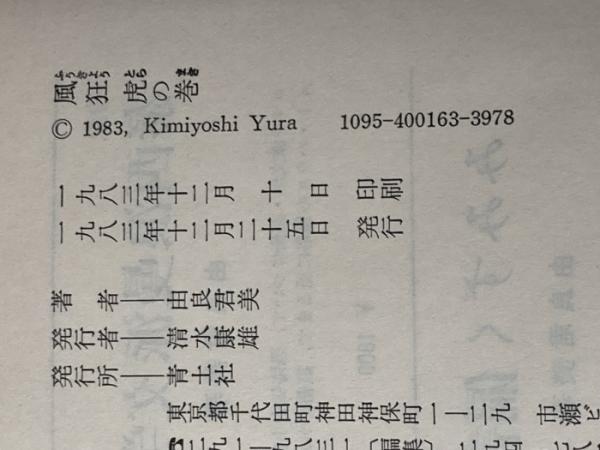 ふうきょう とら まき
風狂 虎の巻
© 1983, Kimiyoshi Yura 1095-400163-3978
一九八三年十二月 十 日 印刷
一九八三年十二月二十五日 発行
著 者——由良君美
発行者——清水康雄
発行所——青土社
東京都千代田町神田神保町一—二九 市瀬ビ
二九一—九八三一〔編集〕 二九四
みみずく